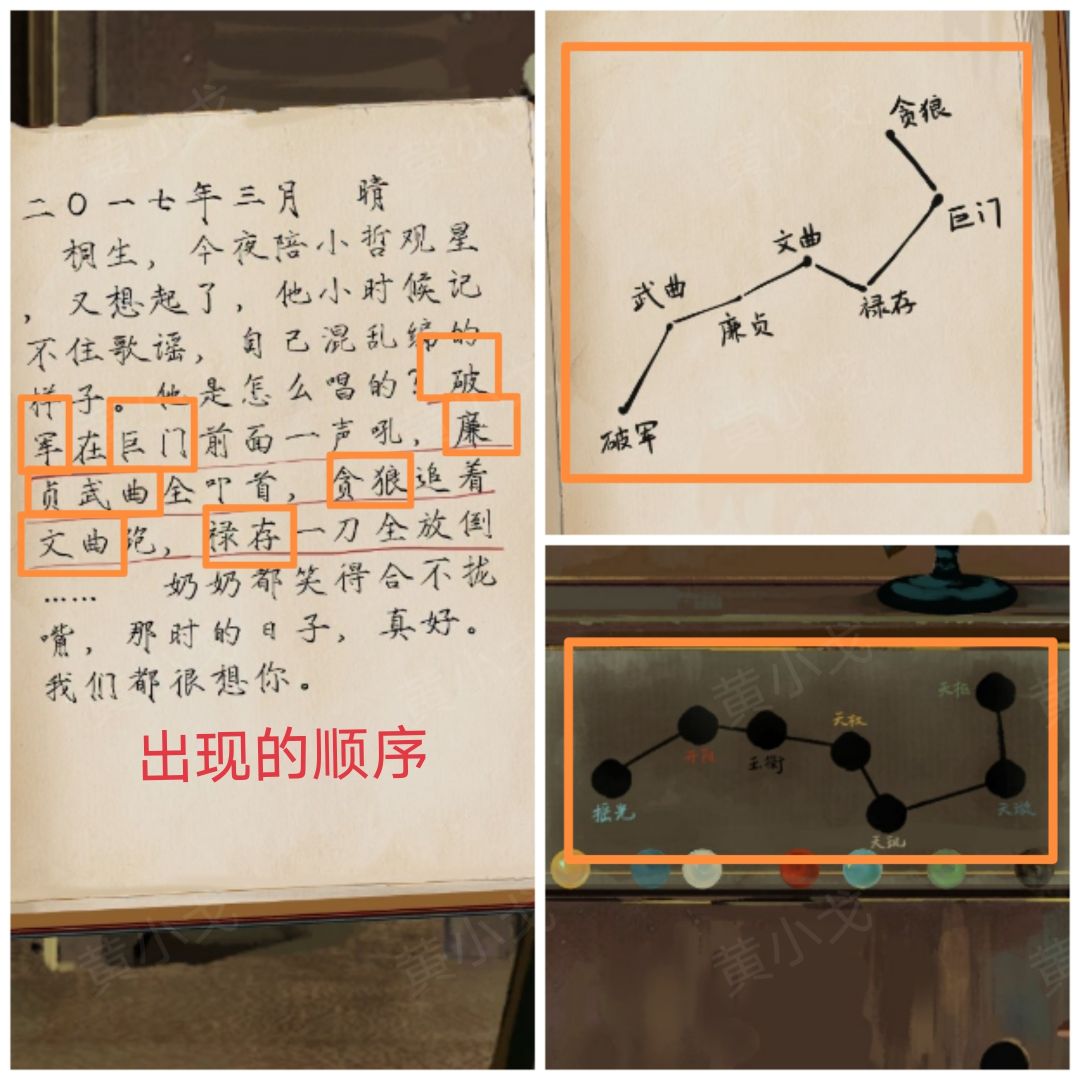 二〇一七年三月 晴
桐生，今夜陪小哲观星
，又想起了，他小时候记
不住歌谣，自己混乱编的
样子。他是怎么唱的？破
军在巨门前面一声吼，廉
贞武曲全叩首，贪狼追着
文曲跑，禄存一刀全放倒
…… 奶奶都笑得合不拢
嘴，那时的日子，真好。
我们都很想你。
出现的顺序
贪狼
巨门
文曲
禄存
武曲
廉贞
破军
天枢
天权
开阳
玉衡
摇光
天璇
天玑
黄小戈